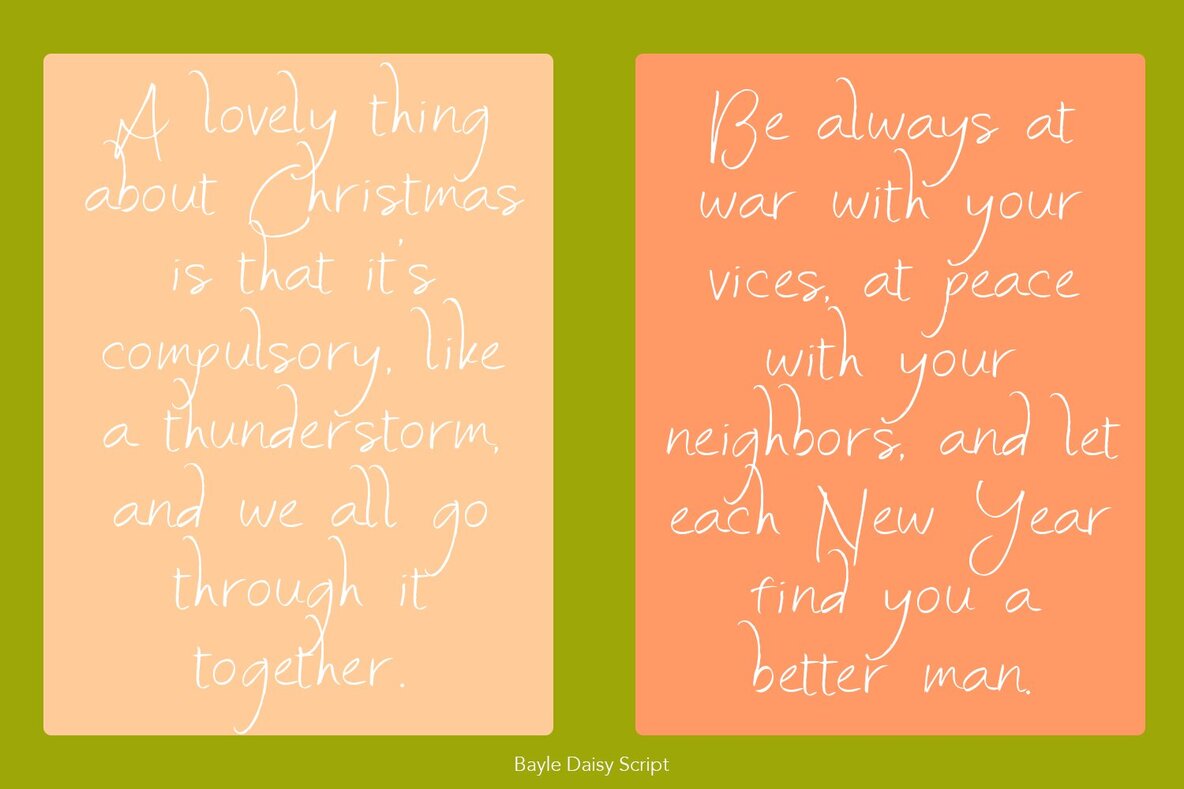 A lovely thing
about Christmas
is that it's
compulsory, like
a thunderstorm,
and we all go
through it
together.
Be always at
war with your
vices, at peace
with your
neighbors, and let
each New Year
find you a
better man.
Bayle Daisy Script